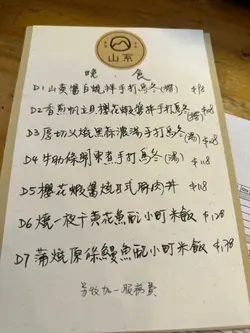 山系
晚 食
D1 山葵醬白燒拌手打烏冬(撈)
D2 香煎帆立貝櫻花蝦醬拌手打烏冬(撈)
D3 厚切火燒黑豚濃湯手打烏冬(湯)
D4 牛肋條關東煮手打烏冬(湯)
D5 櫻花蝦醬燒日式豚肉丼
D6 燒一夜干黃花魚配小町米飯
D7 蒲燒原條鰻魚配小町米飯
另收加一服務費